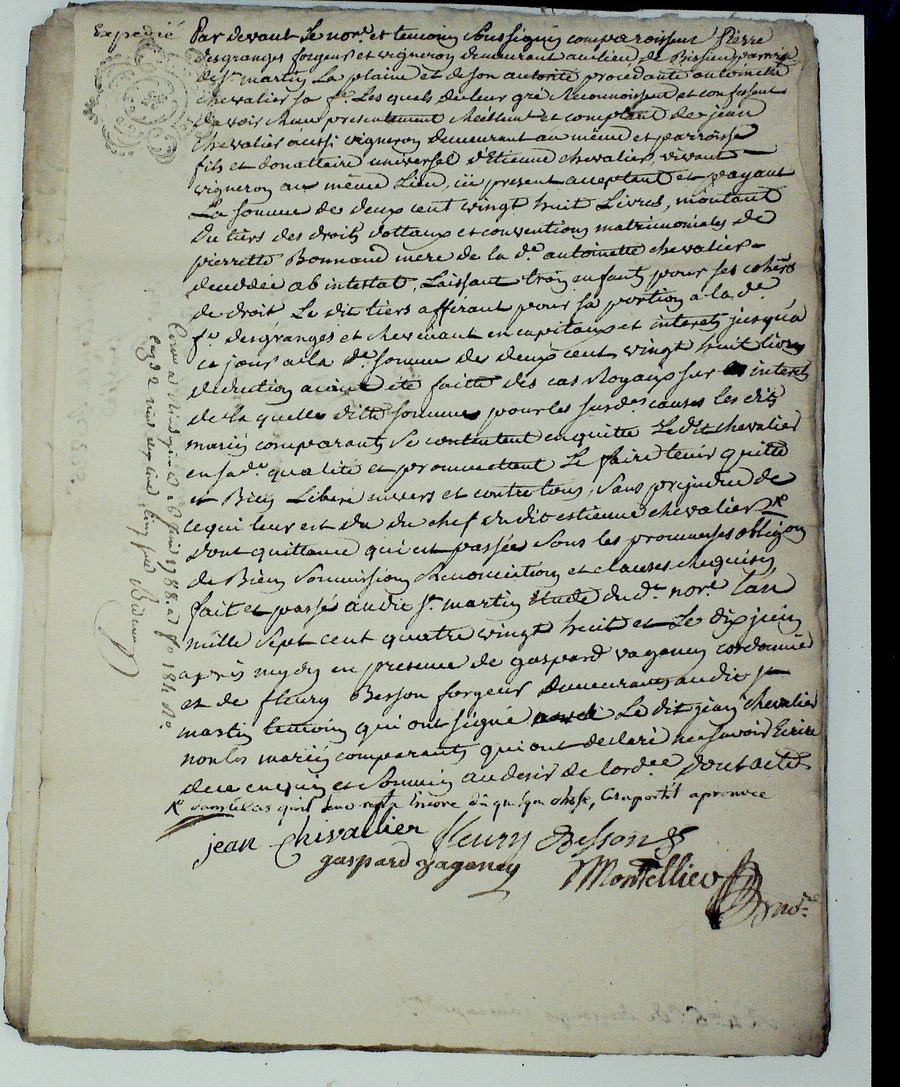 Expedié
Par devant Le nore et temoins Soussignés comparoissent Pierre
desgranges forgeur et vigneron demeurant au lieu de Bissieu parroisse
de st martin La plaine et de son autorité procedante antoinette
chevalier sa fe. Les quels de leur gré Reconnoissent et confessent
d'avoir Receu presentement Reellement et comptant de jean
chevalier aussi vigneron demeurant au même lieu et parroisse
fils et donnattaire universel d'Etienne chevalier, vivant
vigneron au même Lieu, ici present acceptant et payant
La somme de deux cent vingt huit Livres, montant
du tiers des droits dottaux et conventions matrimoniales de
pierrette Bonnand mere de la de. antoinette chevalier
decedée ab intestat, Laissant trois enfants pour ses cohers
de droit Le dit tiers afférant pour sa portion a la de.
fe. desgranges et revenant en capitaux et interets jusqu'a
ce jour a la de. somme de deux cent vingt huit livres
deduction aiant été faitte des cas Royaux sur interets
de la quelle ditte somme pour les susdes causes les dits
mariés comparants se contentent en quitte Le dit chevalier
en sa de. qualité et promettent Le faire tenir quitte
et Bien Liberé envers et contre tous, Sans prejudice de
ce qui leur est du du chef du dit estienne chevalier
dont quittance qui est passée Sous les promesses obligons
de Biens Soumissions Renonciations et clauses Requises,
fait et passé audit st. martin étude du dt. nore. L'an
mille Sept cent quatre vingt huit et Le dix juin
après mydy en presence de gaspard vaganey cordonnier
et de fleury Besson forgeur demeurants audit st
martin temoins qui ont signé Le dit jean chevalier
non les mariés comparants qui ont declaré ne savoir Ecrire
de ce enquis et Sommés au desir de l'ordce dont acte
jean Chivallier fleury Besson
gaspard vaganey Montellier
nore.
juin 1788